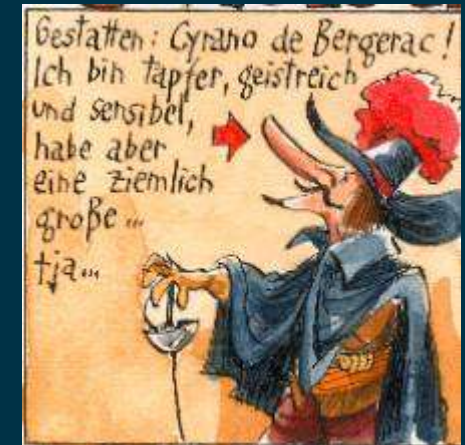 Gestatten: Cyrano de Bergerac!
Ich bin tapfer, geistreich
und sensibel,
habe aber
eine ziemlich
große...
tja...